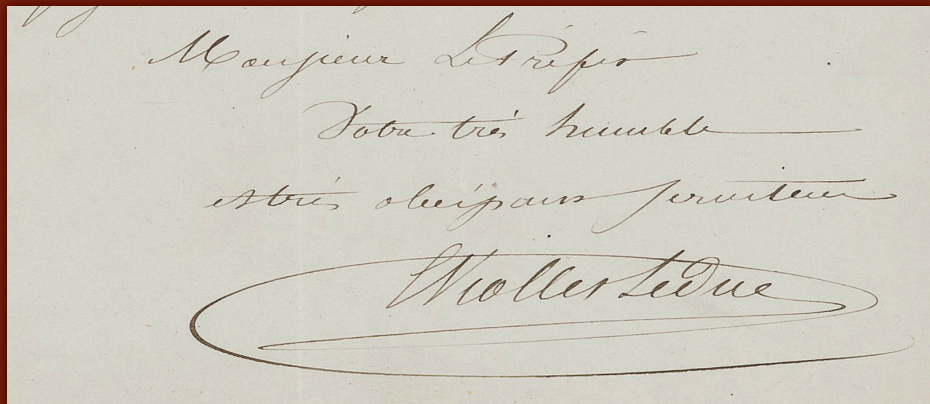 Monsieur Le Préfet
Votre très humble
et très obéissant serviteur
EViollet LeDuc